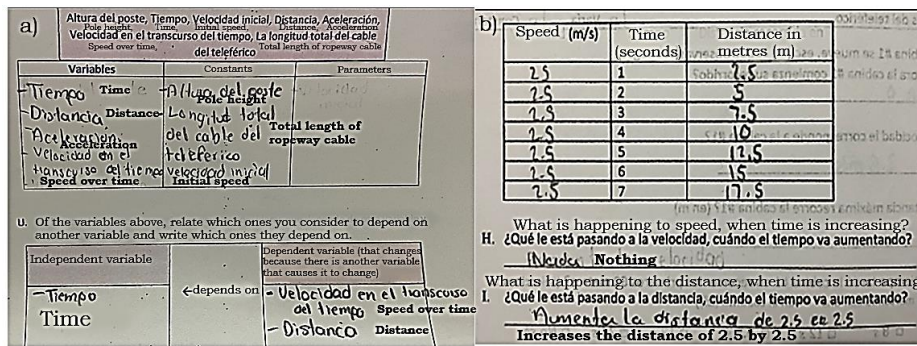 a)
Altura del poste, Tiempo, Velocidad inicial, Distancia, Aceleración,
Pole height, Time, Initial speed, Distance, Acceleration
Velocidad en el transcurso del tiempo, La longitud total del cable
Speed over time, Total length of ropeway cable
del teleférico
Variables Constants Parameters
-Tiempo Time
-Altura del poste
Pole height
-Distancia Distance
-Longitud total
del cable del
teleférico
Total length of
ropeway cable
-Aceleración
Acceleration
-Velocidad en el
transcurso del tiempo
Speed over time
velocidad inicial
Initial speed
U. Of the variables above, relate which ones you consider to depend on
another variable and write which ones they depend on.
Independent variable
←depends on
Dependent variable (that changes
because there is another variable
that causes it to change)
-Tiempo
Time
- Velocidad en el transcurso
del tiempo Speed over time
- Distancia Distance
b)
Speed (m/s) Time (seconds) Distance in metres (m)
25 1 2.5
2.5 2 5
2.5 3 7.5
2.5 4 10
2.5 5 12,5
2.5 6 15
2.5 7 17.5
What is happening to speed, when time is increasing?
H. ¿Qué le está pasando a la velocidad, cuándo el tiempo va aumentando?
Nada Nothing
What is happening to the distance, when time is increasing
I. ¿Qué le está pasando a la distancia, cuándo el tiempo va aumentando?
Aumenta la distancia de 2.5 en 2.5
Increases the distance of 2.5 by 2.5